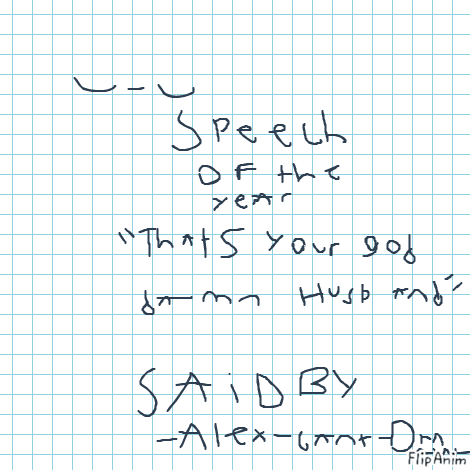 Speech
OF the
year
"That's your god
damn Husband"
SAiD BY
-Alex-cant-Dra
FlipAnim